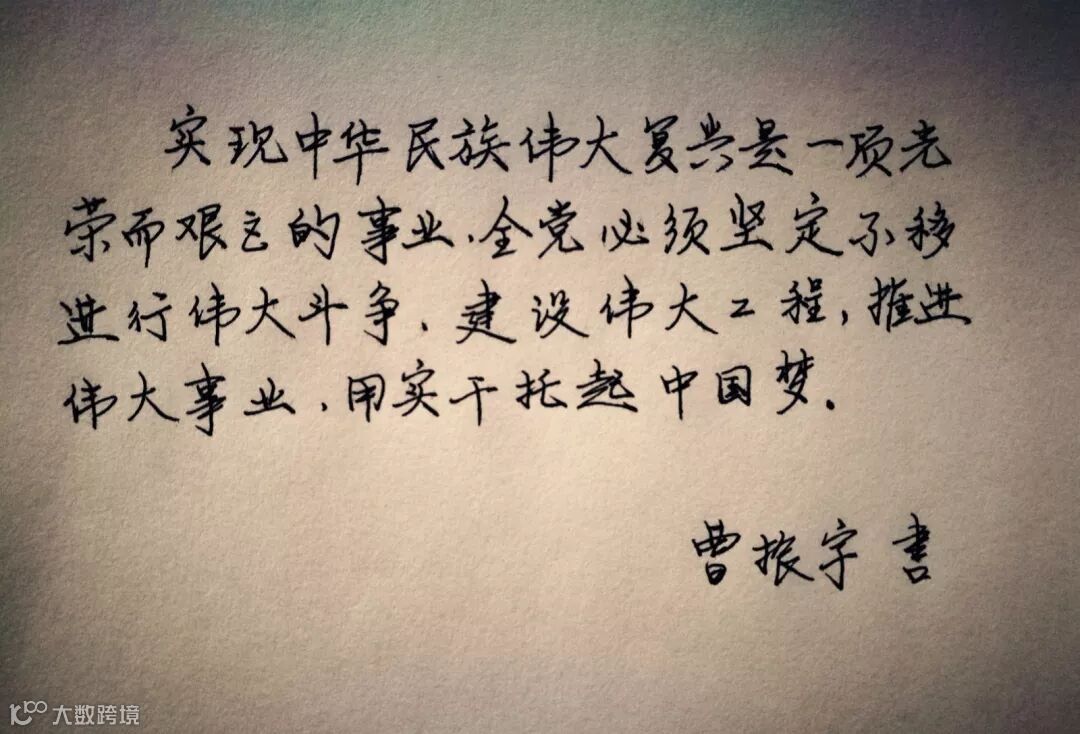 实现中华民族伟大复兴是一项光
荣而艰巨的事业,全党必须坚定不移
进行伟大斗争、建设伟大工程,推进
伟大事业,用实干托起中国梦.
曹振宇 书
大数跨境